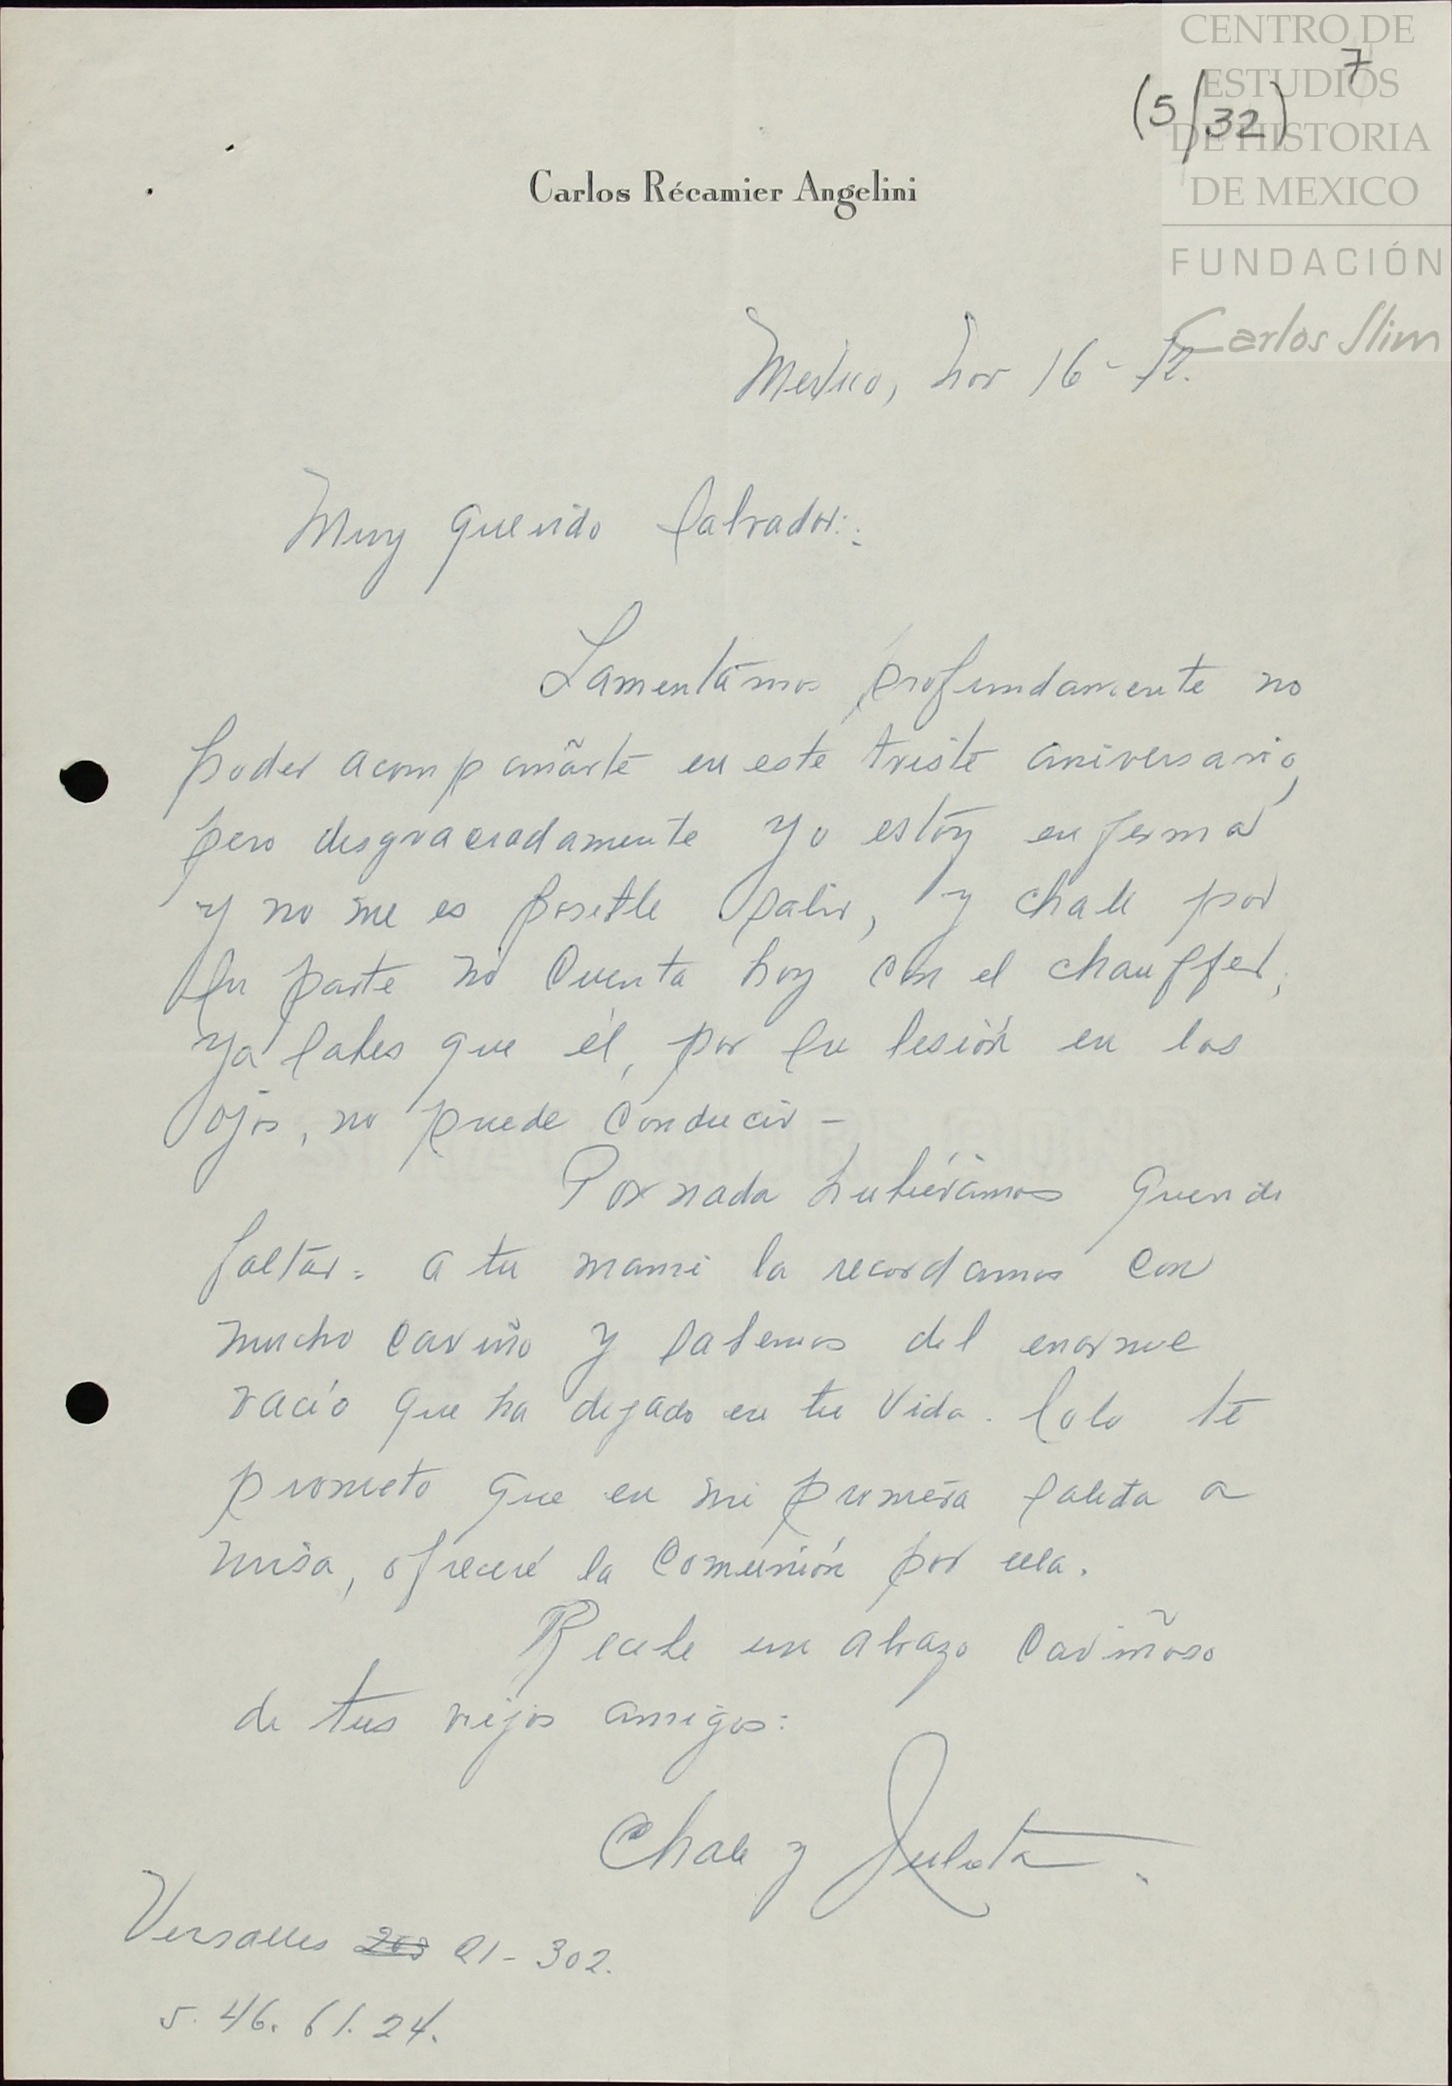 CENTRO DE
ESTUDIOS
DE HISTORIA
DE MEXICO
FUNDACIÓN
Carlos Slim
7
(5/32)
Carlos Récamier Angelini
Mexico, Nov 16-72.
Muy querido Salvador:
Lamentámos profundamente no
poder acompañarte en este triste aniversario,
pero desgraciadamente yo estoy enferma
y no me es posible salir, y Chale por
su parte no cuenta hoy con el chauffer,
ya sabes que él, por su lesión en los
ojos, no puede conducir -
Por nada hubiéramos querido
faltar = a tu mami la recordamos con
mucho cariño y sabemos del enorme
vacío que ha dejado en tu vida. Solo te
prometo que en mi primera salida a
misa, ofreceré la Comunión por ella.
Recibe un abrazo cariñoso
de tus viejos amigos:
Chale y Julieta.
Versalles 21-302.
5.46.61.24.